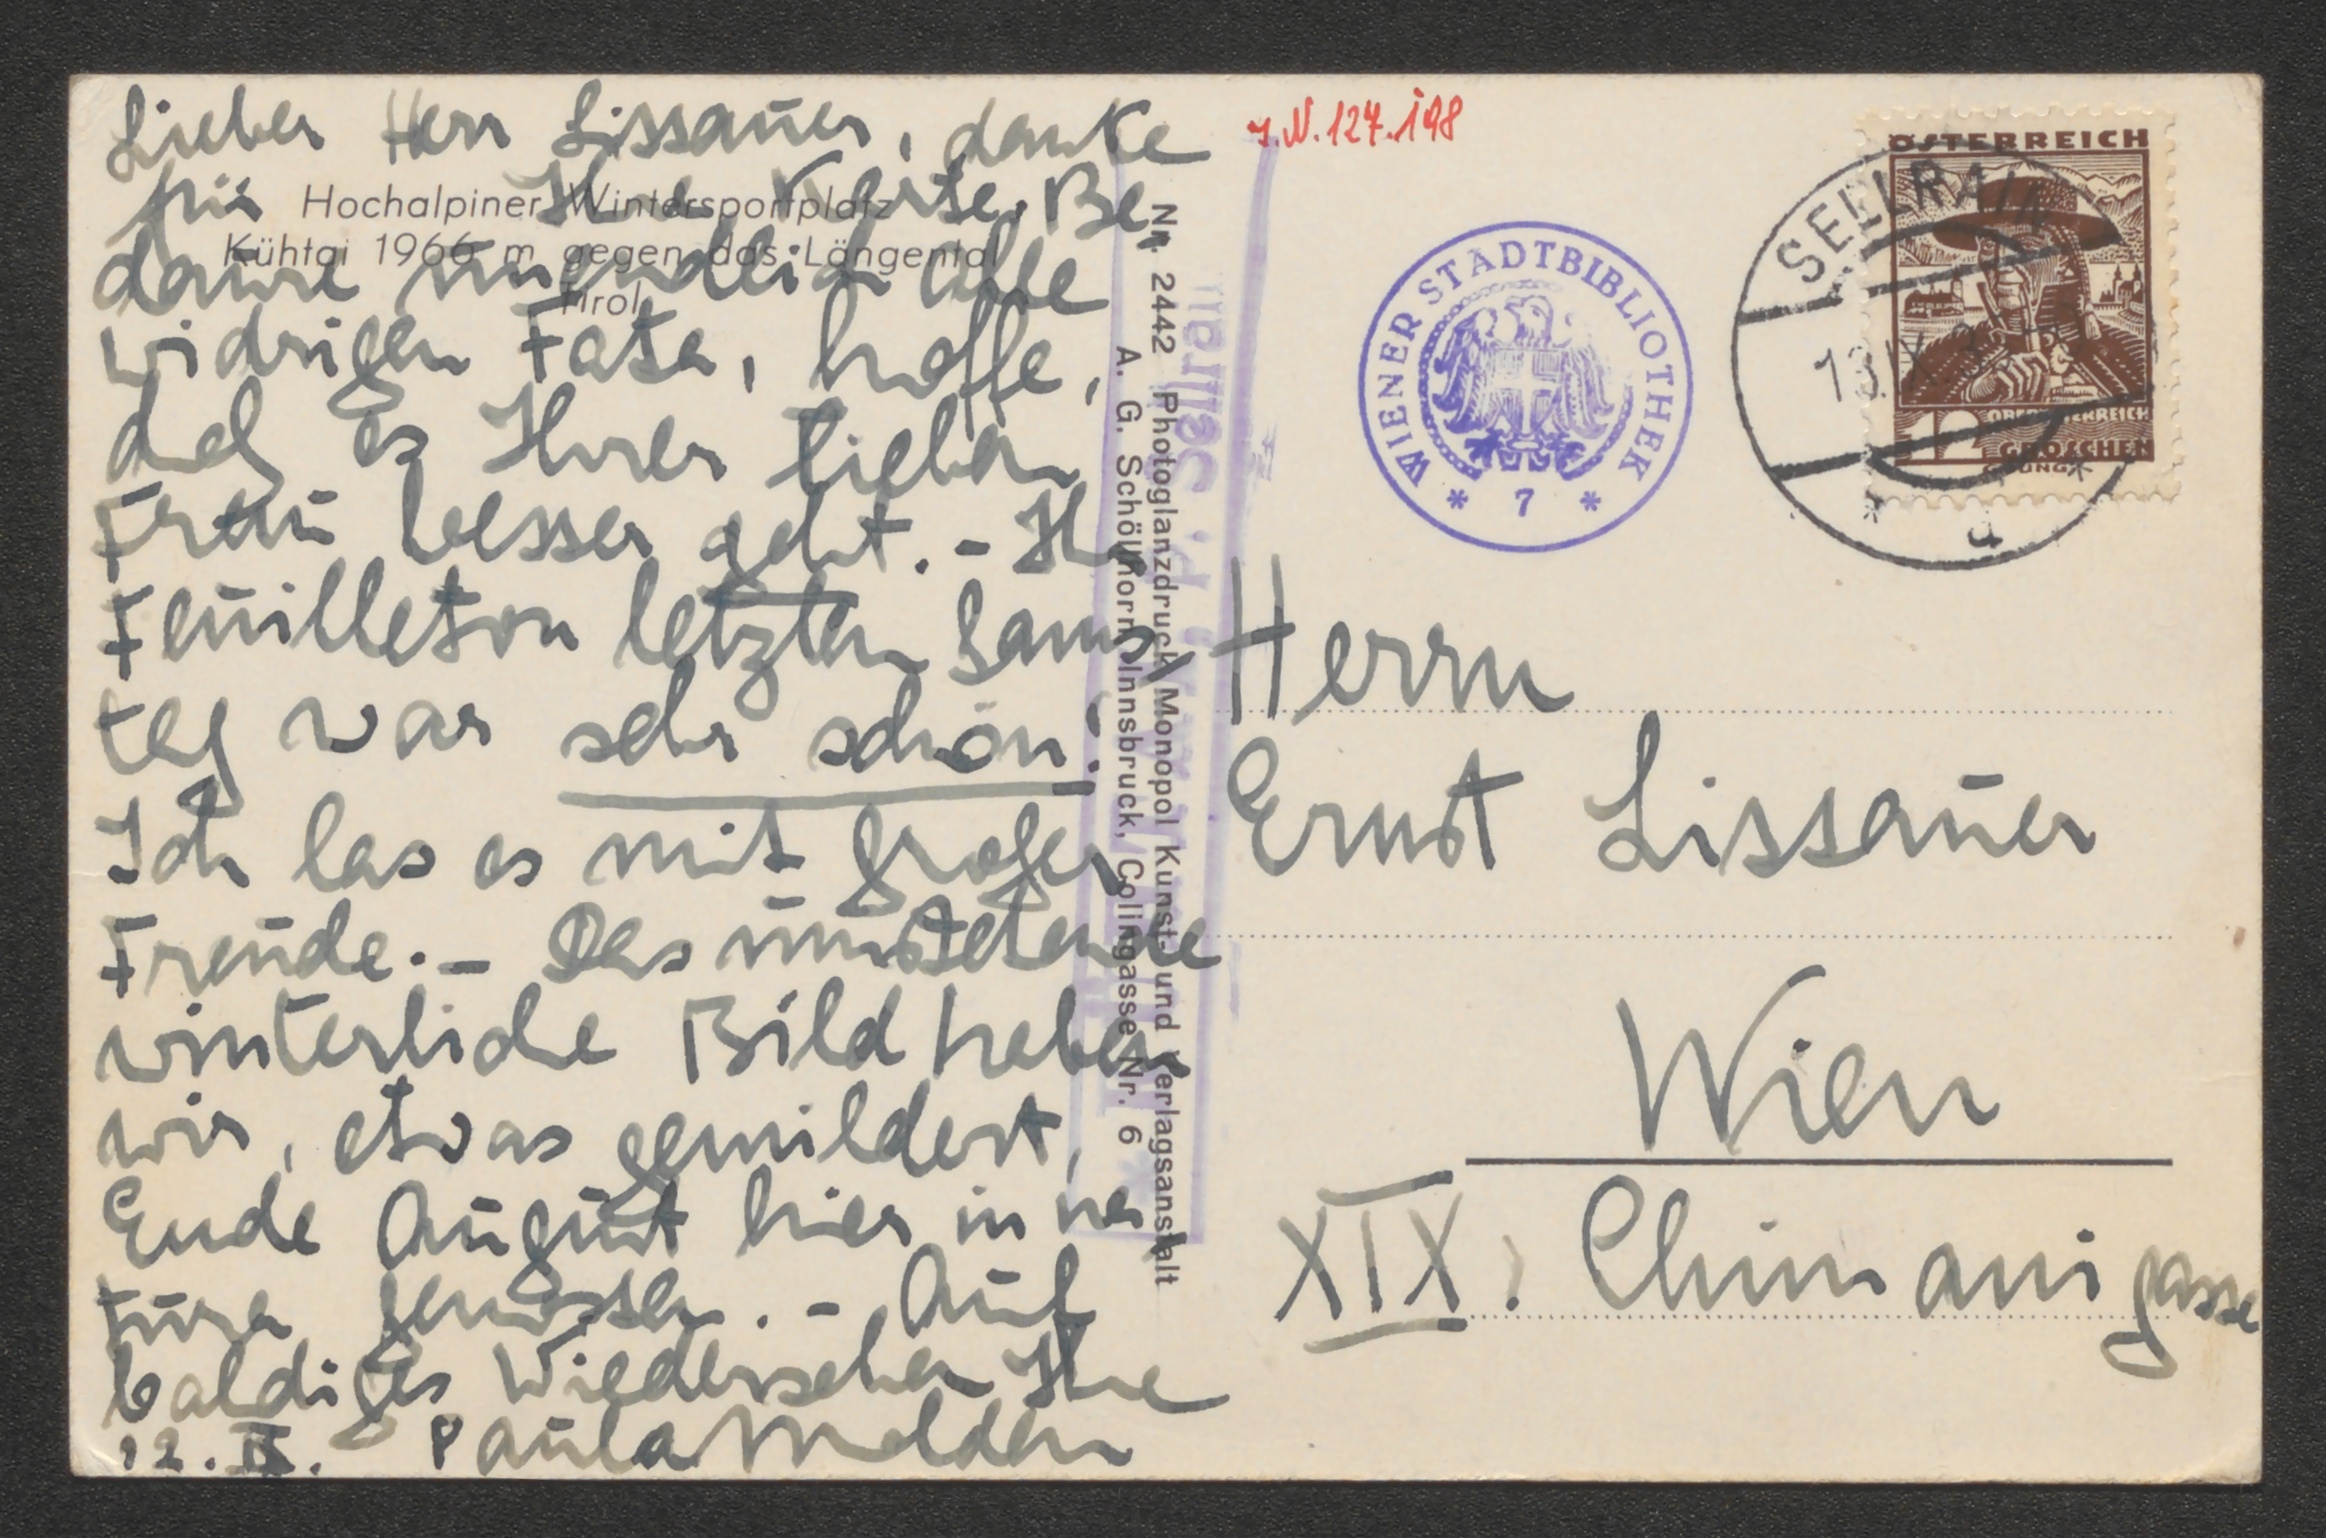 Lieber Herr Lissauer, danke
für Ihre Karte. Be-
daure unendlich alle
widrigen Fata, hoffe,
daß es Ihrer lieben
Frau besser geht. - Ihr
Feuilleton letzten Sams-
tag war sehr schön!
Ich las es mit großer
Freude. - Das umstehende
winterliche Bild haben
wir, etwas gemildert,
Ende August hier in na-
tura genossen. - Auf
baldiges Wiedersehen Ihre
12. IX. Paula Molden
Hochalpiner Wintersportplatz
Kühtai 1966 m gegen das Längental
Tirol
Nr. 2442 Photoglanzdruck Monopol Kunst- und Verlagsanstalt
A. G. Schöllhorn, Innsbruck, Colingasse Nr. 6
J.N. 124.198
WIENER STADTBIBLIOTHEK
* 7 *
ÖSTERREICH
12 OBERÖSTERREICH
GROSCHEN
SELLRAIN
Herrn
Ernst Lissauer
Wien
XIX. Chimanigasse